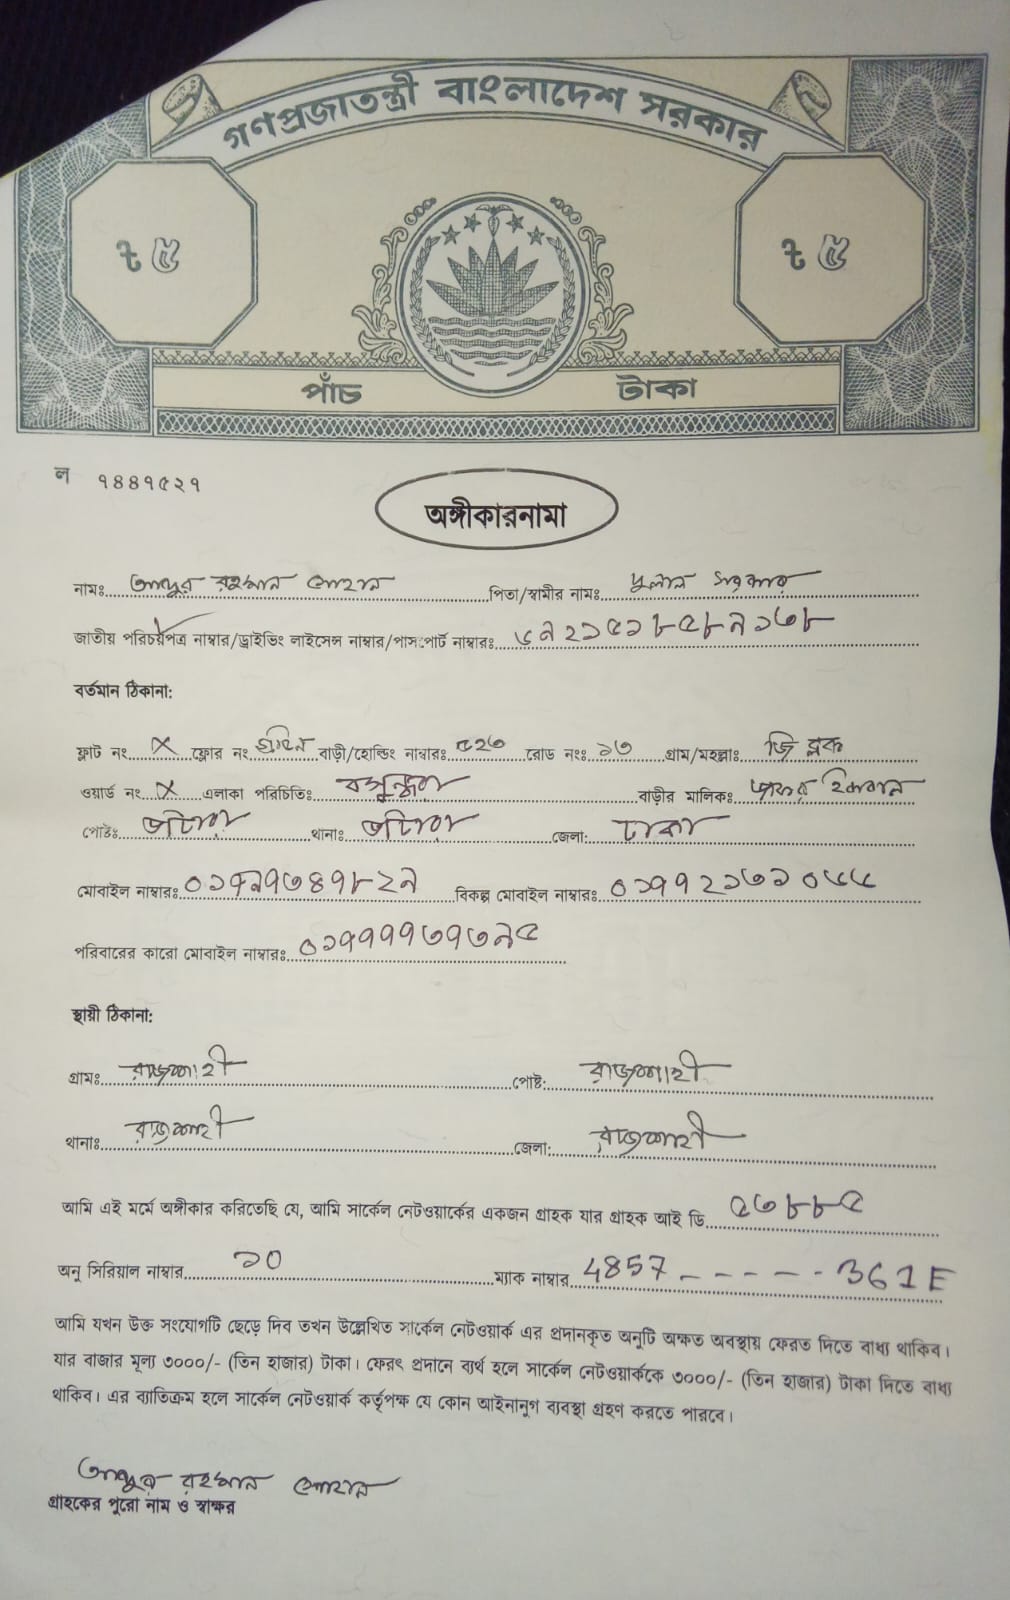 গণপ্রজাতন্ত্রী বাংলাদেশ সরকার
৳ ৫ ৳ ৫
পাঁচ টাকা
ল ৭৪৪৭৫২৭
অঙ্গীকারনামা
নামঃ আব্দুর রহমান সোহান পিতা/স্বামীর নামঃ দুলাল সরকার
জাতীয় পরিচয়পত্র নাম্বার/ড্রাইভিং লাইসেন্স নাম্বার/পাসপোর্ট নাম্বারঃ
বর্তমান ঠিকানা:
ফ্লাট নং X ফ্লোর নং বাড়ী/হোল্ডিং নাম্বারঃ ৫২৩ রোড নংঃ ১৩ গ্রাম/মহল্লাঃ জি ব্লক
ওয়ার্ড নং X এলাকা পরিচিতিঃ বসুন্ধরা বাড়ীর মালিকঃ
পোষ্টঃ ভাটারা থানাঃ ভাটারা জেলা: ঢাকা
মোবাইল নাম্বারঃ বিকল্প মোবাইল নাম্বারঃ
পরিবারের কারো মোবাইল নাম্বারঃ
স্থায়ী ঠিকানা:
গ্রামঃ রাজশাহী পোষ্ট: রাজশাহী
থানাঃ রাজশাহী জেলা: রাজশাহী
আমি এই মর্মে অঙ্গীকার করিতেছি যে, আমি সার্কেল নেটওয়ার্কের একজন গ্রাহক যার গ্রাহক আই ডি ৫৩৮৮৫
অনু সিরিয়াল নাম্বার ১০ ম্যাক নাম্বার 4857 ------ 361E
আমি যখন উক্ত সংযোগটি ছেড়ে দিব তখন উল্লেখিত সার্কেল নেটওয়ার্ক এর প্রদানকৃত অনুটি অক্ষত অবস্থায় ফেরত দিতে বাধ্য থাকিব।
যার বাজার মূল্য ৩০০০/- (তিন হাজার) টাকা। ফেরৎ প্রদানে ব্যর্থ হলে সার্কেল নেটওয়ার্ককে ৩০০০/- (তিন হাজার) টাকা দিতে বাধ্য
থাকিব। এর ব্যাতিক্রম হলে সার্কেল নেটওয়ার্ক কর্তৃপক্ষ যে কোন আইনানুগ ব্যবস্থা গ্রহণ করতে পারবে।
আব্দুর রহমান সোহান
গ্রাহকের পুরো নাম ও স্বাক্ষর